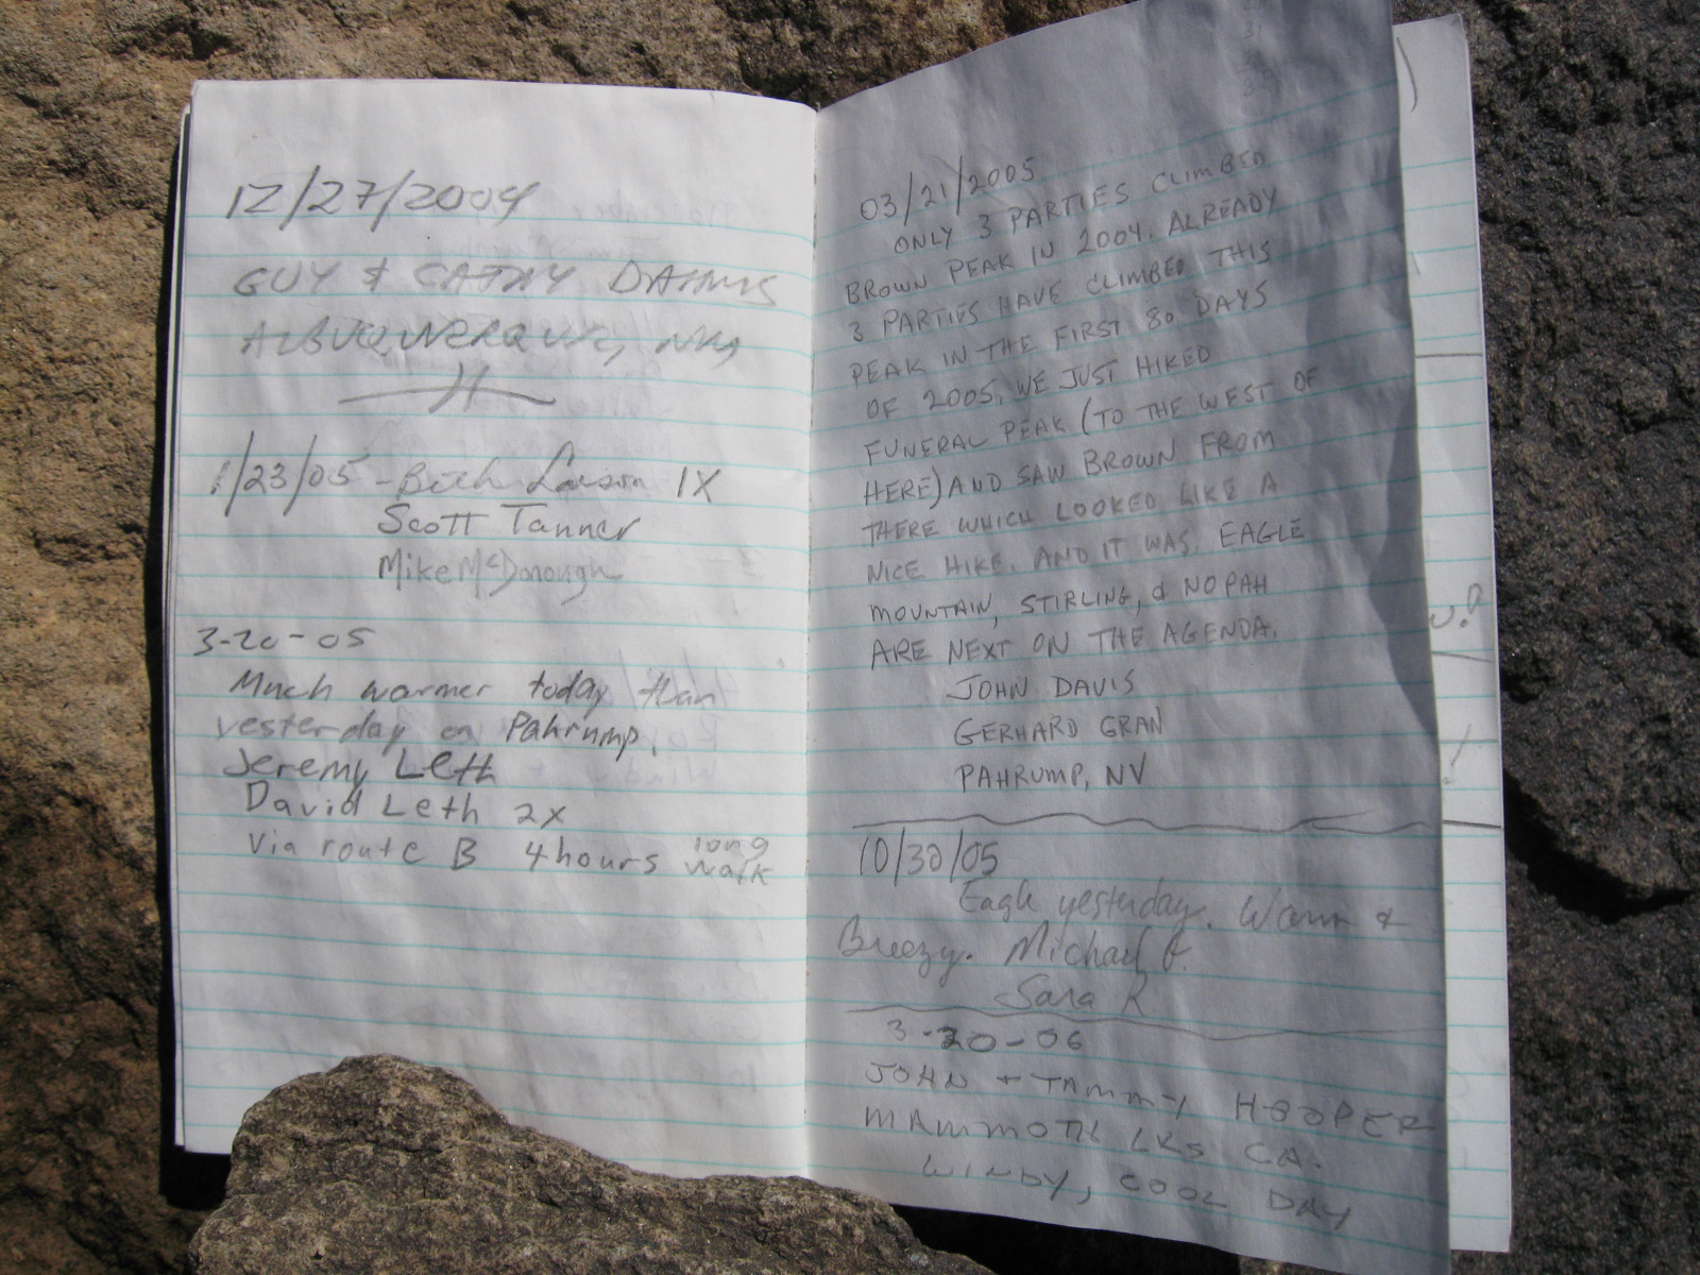 12/27/2004
GUY & CATHY
ALBUQUERQUE, NM
1/23/05 - Larson 1X
Scott Tanner
Mike McDonough
3-20-05
Much warmer today than
yesterday on Pahrump.
Jeremy Leth
David Leth 2x
Via route B 4 hours long
walk
03/21/2005
ONLY 3 PARTIES CLIMBED
BROWN PEAK IN 2004. ALREADY
3 PARTIES HAVE CLIMBED THIS
PEAK IN THE FIRST 80 DAYS
OF 2005. WE JUST HIKED
FUNERAL PEAK (TO THE WEST OF
HERE) AND SAW BROWN FROM
THERE WHICH LOOKED LIKE A
NICE HIKE. AND IT WAS. EAGLE
MOUNTAIN, STIRLING, & NOPAH
ARE NEXT ON THE AGENDA.
JOHN DAVIS
GERHARD GRAN
PAHRUMP, NV
10/30/05
Eagle yesterday. Warm &
Breezy. Michael
Sara R
3-20-06
JOHN + TAMMY HOOPER
MAMMOTH LKS CA.
WINDY, COOL DAY